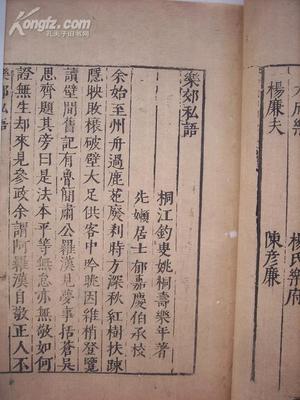 孔夫子旧书网
楊氏樂府
楊廉夫
陳彥廉
樂郊私語
桐江釣叟姚桐壽樂年著
先嬾居士郁嘉慶伯承校
余始至州舟過鹿苑廢刹時方深秋紅樹扶疎
隱映敗榱破壁大足供客中吟眺因維梢登覽
讀壁間舊記有魯簡肅公羅漢見夢事括蒼吳
思齊題其旁曰是法本平等無怠亦無敬如何
證無生却來見參政余謂阿羅漢自敬正人不
樂郊私語